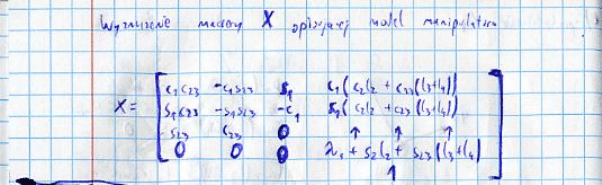 Wyznaczenie macierzy X opisującej model manipulatora
c₁c₂₃ -c₁s₂₃ s₁ c₁(c₂l₂ + c₂₃(l₃+l₄))
X= s₁c₂₃ -s₁s₂₃ -c₁ s₁(c₂l₂ + c₂₃(l₃+l₄))
s₂₃ c₂₃ 0 ↑ ↑ ↑
0 0 0 λ₁ + s₂l₂ + s₂₃(l₃+l₄)
↑